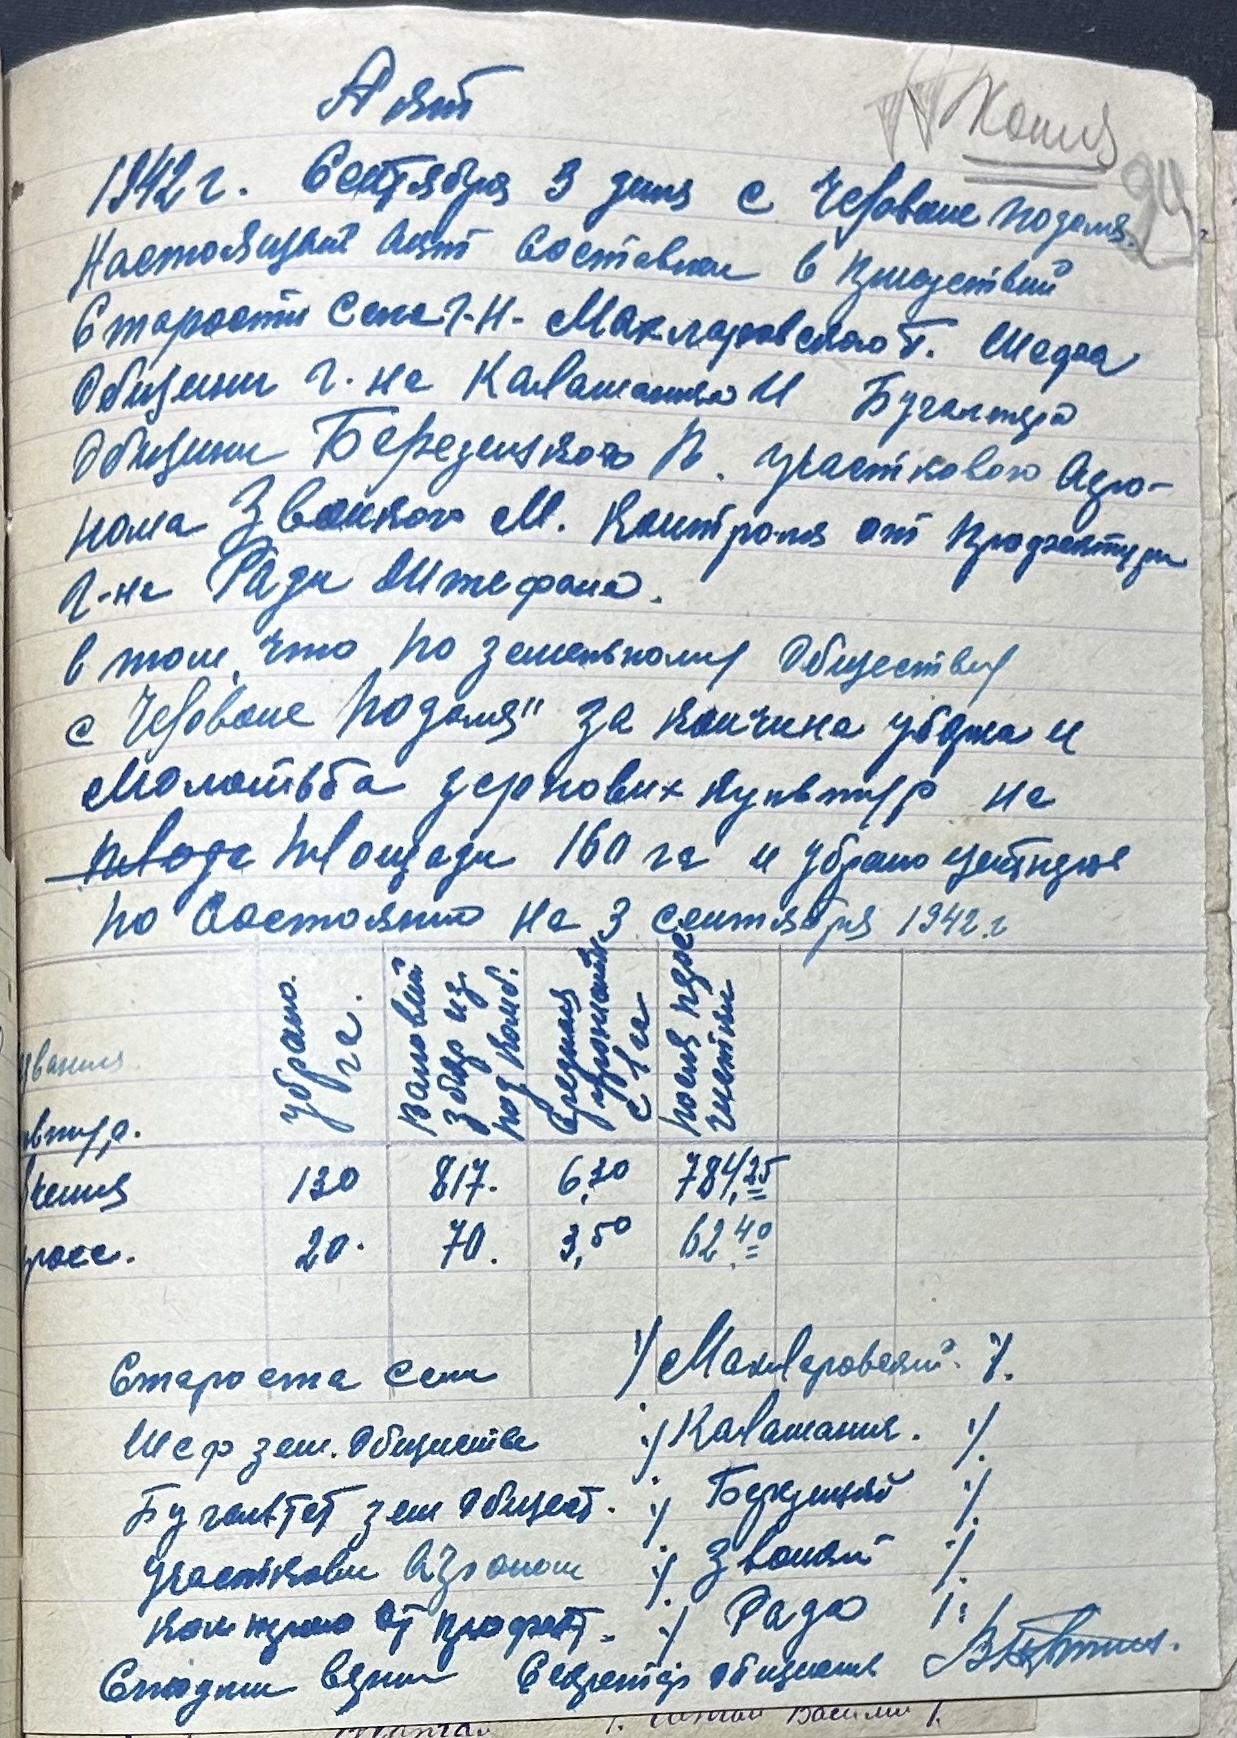 Копия
94
Акт
1942 г. Сентября 3 дня с Червоне Подоля.
Настоящий акт составлен в присутствии
Старости Села Г-н- Макларовского Т. Шефа
Общини г. на Калашника И Бугалтера
Общини Березинского П. участкового Агро-
нома Звонкого М. Контроля от Префектури
г-на Раду Штефана.
в том, что по земельному Обществу
с Червоне Подоля" за кончина уборка и
Молотьба зернових культур на
площади 160 га и убрано центнер
по Состоянию на 3 сентября 1942 г
звания
культур.
убрано га.
Валовый збор из под комб.
Средняя урожайн с 1 га
После пере чистки
130 817. 6,30 784,25
просо. 20. 70. 3,50 62,40
Староста Села /Макларовский. /.
Шеф зем. Общества ./ Калашник. /.
Бугалтер зем Общест. ./ Березинский /.
Участкови Агроном ./ Звонкий /.
Контроль От Префект. ./ Раду /.
Секретар общини
Василий /.